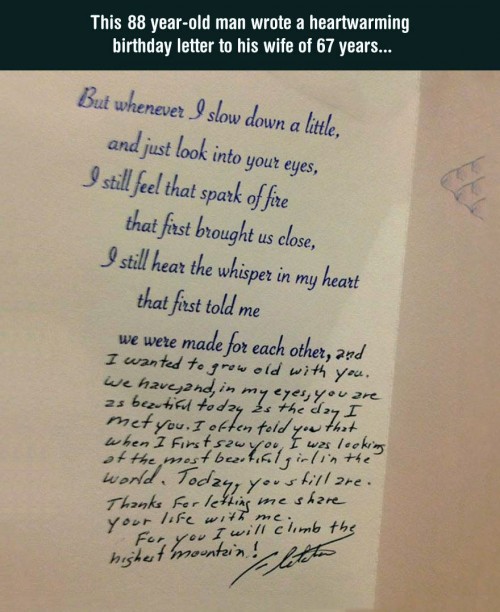 This 88 year-old man wrote a heartwarming
birthday letter to his wife of 67 years...
But whenever I slow down a little,
and just look into your eyes,
I still feel that spark of fire
that first brought us close,
I still hear the whisper in my heart
that first told me
we were made for each other, and
I wanted to grow old with you.
We have, and, in my eyes, you are
as beautiful today as the day I
met you. I often told you that
when I first saw you, I was looking
at the most beautiful girl in the
world. Today, you still are.
Thanks for letting me share
your life with me.
For you I will climb the
highest mountain!